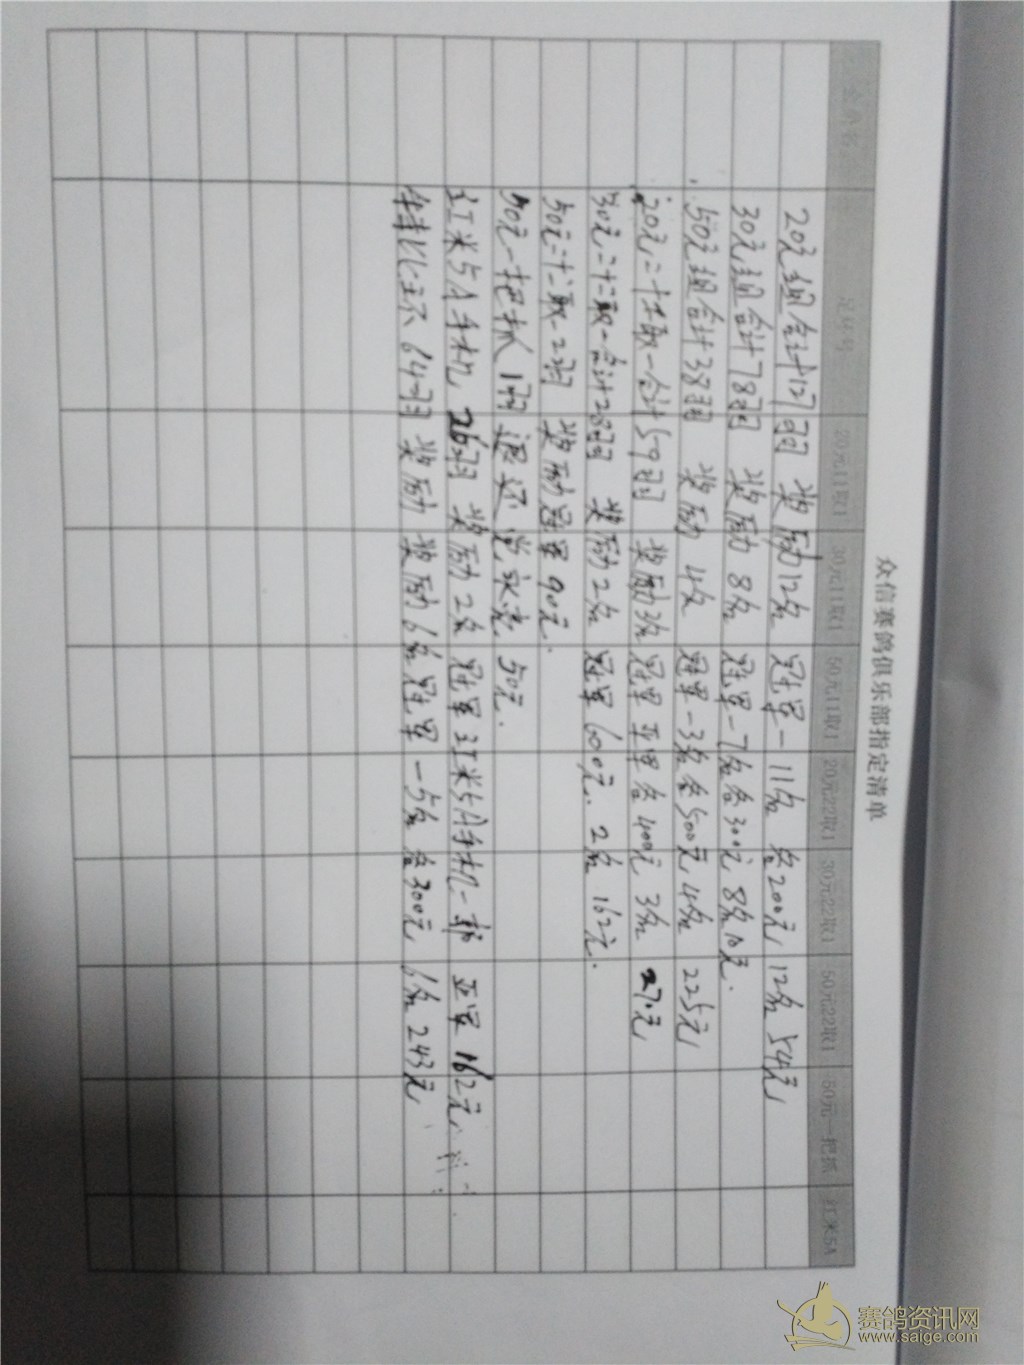 众信赛鸽俱乐部指定清单
会员名 足环号 20元11取1 30元11取1 50元11取1 20元22取1 30元22取1 50元22取1 50元一把抓 红米5A
20元组合计127羽 奖励12名 冠军－11名 各200元, 12名 54元,
30元组合计78羽 奖励8名 冠军－7名各300元, 8名10元.
50元组合计38羽 奖励 4名 冠军－3名各500元, 4名 225元,
20元二十二取一合计59羽 奖励3名 冠军 亚军各400元 3名 270元,
30元二十二取一合计28羽 奖励2名 冠军600元. 2名 162元.
50元二十二取一2羽 奖励冠军90元.
50元一把抓1羽 退还 50元.
红米5A手机 26羽 奖励2名 冠军红米5A手机一部 亚军162元,
64羽 奖励 奖励6名 冠军－5名 各300元, 6名243元,
赛鸽资讯网
www.saige.com